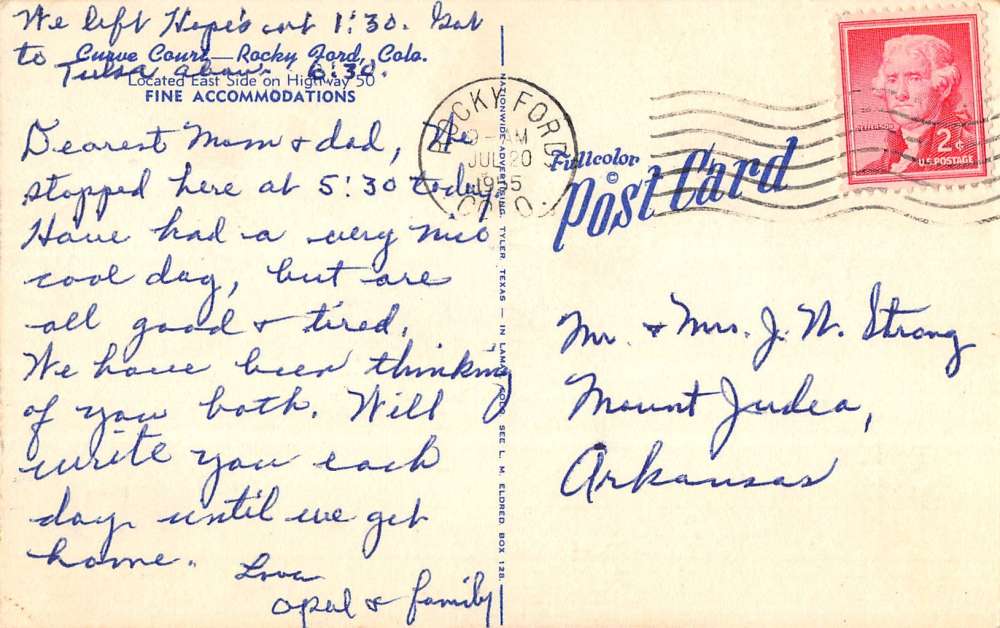 We left Hope's at 1:30. Got
to Tulsa about 6:30.
Curve Court—Rocky Ford, Colo.
Located East Side on Highway 50
FINE ACCOMMODATIONS
Dearest Mom & dad, We
stopped here at 5:30 today.
Have had a very nice
cool day, but are
all good & tired.
We have been thinking
of you both. Will
write you each
day until we get
home.
Love
Opal & family
NATIONWIDE ADVERTISING, TYLER, TEXAS — IN LAMAR, COLO. SEE L. M. ELDRED BOX 128.
ROCKY FORD
AM
JUL 20
1955
COLO.
Fullcolor
©
Post Card
JEFFERSON
2¢
U.S. POSTAGE
Mr. & Mrs. J. W. Strong
Mount Judea,
Arkansas